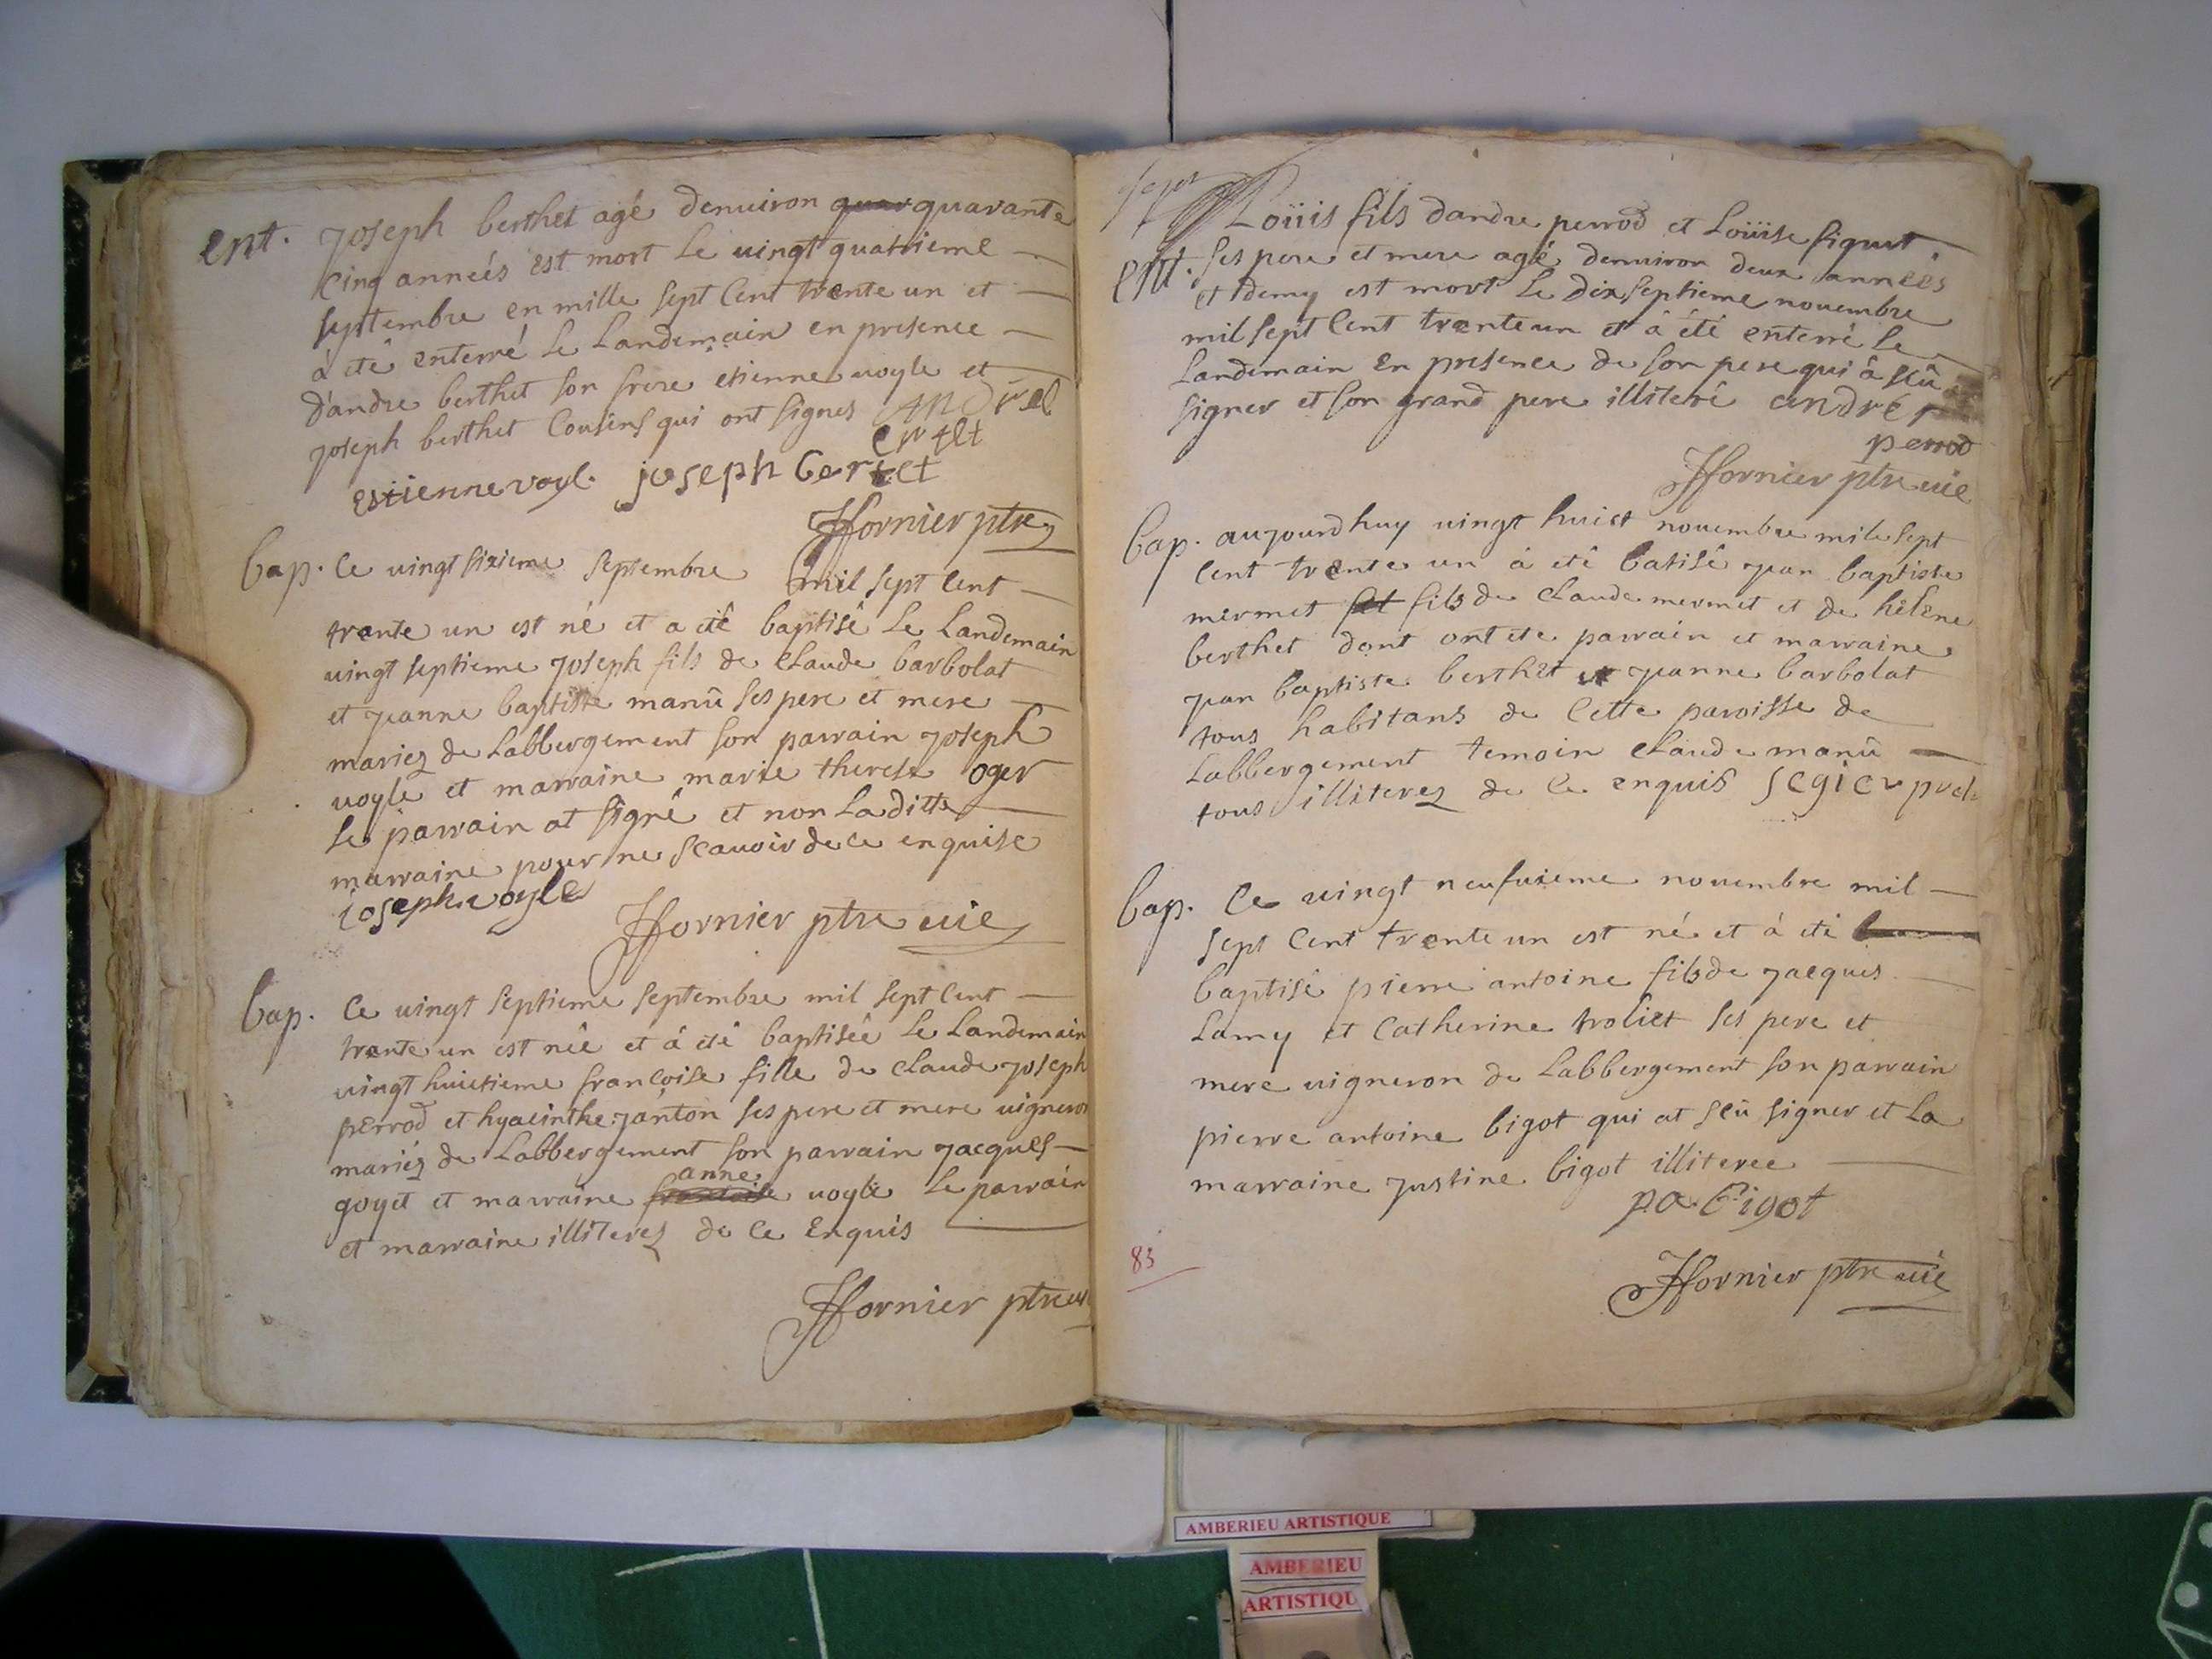 ent. joseph berthet agé denuiron quar quarante
cinq anneés est mort le uingt quatrieme
septembre en mille sept cent trente un et
à été enterré le landemain en presence
d'andre berthet son frere etienne uoyle et
joseph berthet cousins qui ont signes andrel
estienne voyl. joseph bertet
ffornier ptre
bap. ce uingt sixieme septembre mil sept cent
trente un est né et a eté baptisé le landemain
uingt septieme joseph fils de claude barbolat
et jeanne baptiste manû ses pere et mere
mariez de labbergement son parrain joseph
uoyle et marraine marie therese oger
le parrain at signé et non laditte
marraine pour ne scauoir de ce enquise
ioseph voyle
ffornier ptre uic
bap. ce uingt septieme septembre mil sept cent
trente un est née et á eté baptisée le landemain
uingt huictieme francoise fille de claude joseph
perrod et hyacinthe janton ses pere et mere uigneron
mariez de labbergement son parrain jacques
anne
goyet et marraine francoise uoyle le parrain
et marraine illiterez de ce enquis
ffornier ptre
Loüis fils dandre perrod et Loüise
ent. ses pere et mere agé denuiron deux années
et demy est mort le dixseptieme nouembre
mil sept cent trente un et â été enterré le
landemain en presence de son pere qui â scû
signer et son grand pere illiteré andré
perrod
ffornier ptre uic
bap. aujourdhuy uingt huict nouembre mile sept
cent trente un á eté batisé jean baptiste
mermet fils de claude mermet et de hélene
berthet dont ont ete parrain et marraine
jean baptiste berthet et jeanne barbolat
tous habitans de cette paroisse de
labbergement temoin claude manû
tous illiterez de ce enquis segier
bap. ce uingt neufuieme nouembre mil
sept cent trente un est né et á eté
baptisé pierre antoine fils de jacques
lamy et catherine troliet ses pere et
mere uigneron de labbergement son parrain
pierre antoine bigot qui at scû signer et la
marraine justine bigot illiteree
pa bigot
83
ffornier ptre uic
AMBERIEU ARTISTIQUE
AMBERIEU
ARTISTIQU